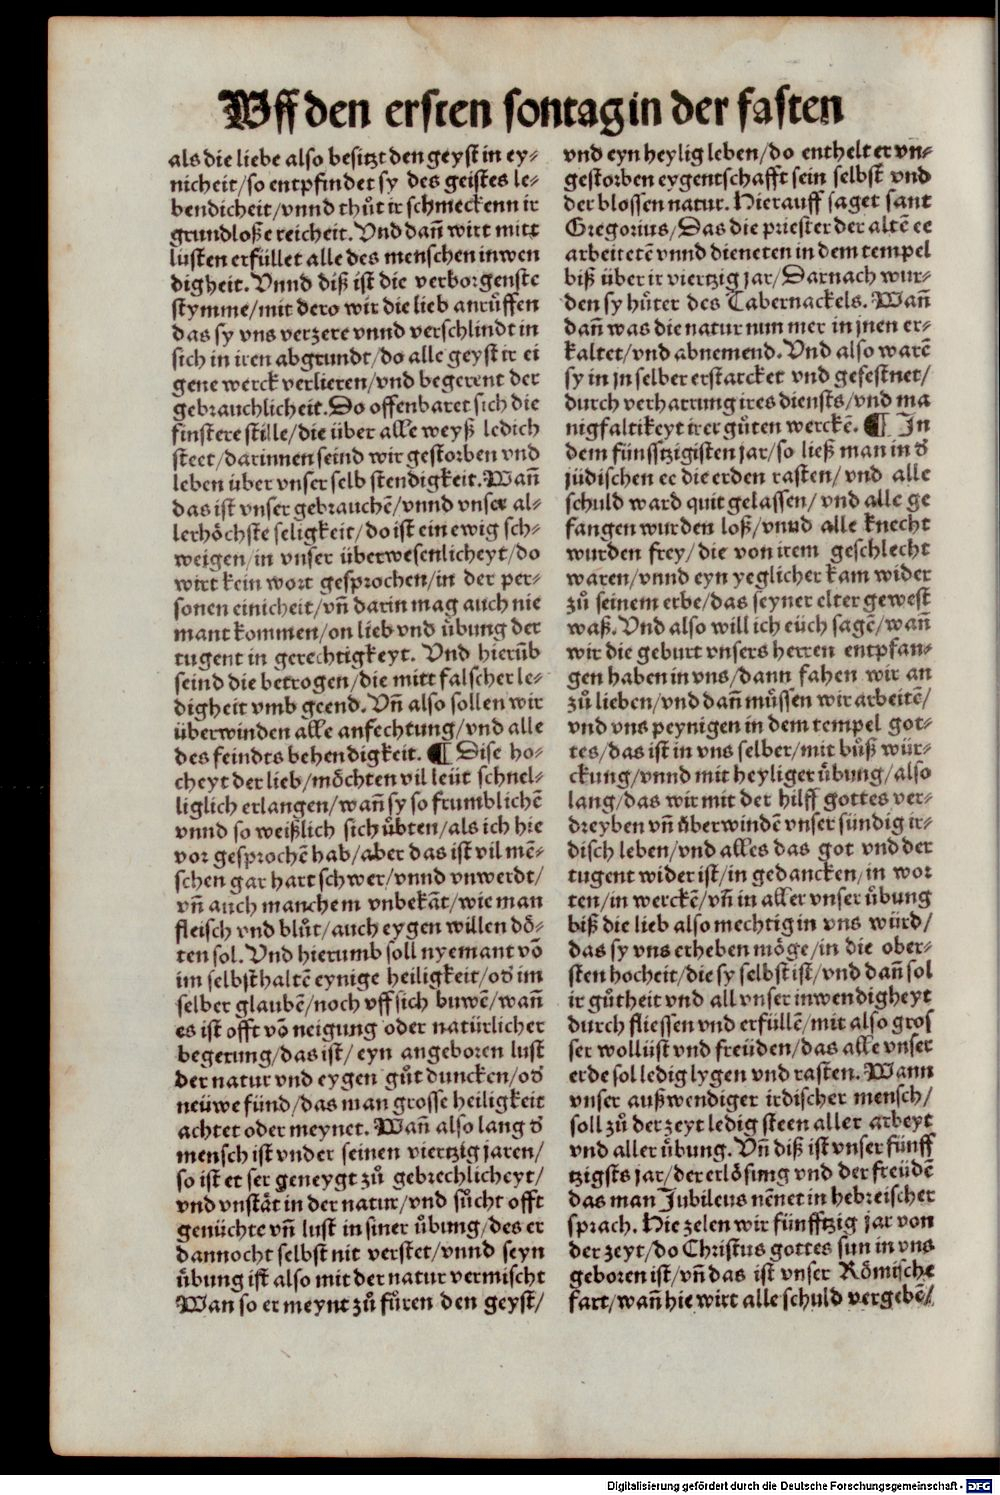 Vff den ersten sontag in der fasten
als die liebe also besitzt den geyst in ey-
nicheit/so entpfindet sy des geistes le-
bendicheit/vnnd thůt ir schmeckenn ir
grundloße reicheit. Vnd dañ wirt mitt
lüsten erfüllet alle des menschen inwen
digheit. Vnnd diß ist die verborgenste
stymme/mit dero wir die lieb anrůffen
das sy vns verzere vnnd verschlindt in
sich in iren abgrundt/do alle geyst ir ei
gene werck verlieren/vnd begerent der
gebrauchlicheit. Do offenbaret sich die
finstere stille/die über alle weyß ledich
steet/darinnen seind wir gestorben vnd
leben über vnser selb stendigkeit. Wañ
das ist vnser gebrauchẽ/vnnd vnser al-
lerhöchste seligkeit/do ist ein ewig sch-
weigen/in vnser überwesenlicheyt/do
wirt kein wort gesprochen/in der per-
sonen einicheit/vñ darin mag auch nie
mant kommen/on lieb vnd ůbung der
tugent in gerechtigkeyt. Vnd hierũb
seind die betrogen/die mitt falscher le-
digheit vmb geend. Vñ also sollen wir
überwinden alle anfechtung/vnd alle
des feindts behendigkeit. ¶ Dise ho-
cheyt der lieb/möchten vil leüt schnel-
liglich erlangen/wañ sy so frumblichẽ
vnnd so weißlich sich ůbten/als ich hie
vor gesprochẽ hab/aber das ist vil mẽ-
schen gar hart schwer/vnnd vnwerdt/
vñ auch manchem vnbekãt/wie man
fleisch vnd blůt/auch eygen willen dö-
ten sol. Vnd hierumb soll nyemant võ
im selbst haltẽ eynige heiligkeit/oď im
selber glaubẽ/noch vff sich buwẽ/wañ
es ist offt võ neigung oder natürlicher
begerung/das ist/ eyn angeboren lust
der natur vnd eygen gůt duncken/oď
neüwe fünd/das man grosse heiligkeit
achtet oder meynet. Wañ also lang ď
mensch ist vnder seinen viertzig jaren/
so ist et ser geneygt zů gebrechlicheyt/
vnd vnstät in der natur/vnd sůcht offt
genüchte vñ lust in siner ůbung/des er
dannocht selbst nit verstet/vnnd seyn
ůbung ist also mit der natur vermischt
Wan so er meynt zů fůren den geyst/
vnd eyn heylig leben/do enthelt er vn-
gestorben eygentschafft sein selbst vnd
der blossen natur. Hierauff saget sant
Gregorius/Das die priester der altẽ ee
arbeitetẽ vnnd dieneten in dem tempel
biß über ir viertzig jar/Darnach wur-
den sy hůter des Tabernackels. Wañ
dañ was die natur nun mer in jnen er-
kaltet/vnd abnemend. Vnd also warẽ
sy in jn selber erstarcket vnd gefestnet/
durch verharrung ires diensts/vnd ma
nigfaltikeyt irer gůten werckẽ. ¶ In
dem fünsstzigisten jar/so ließ man in ď
jüdischen ee die erden rasten/ vnd alle
schuld ward quit gelassen/ vnd alle ge
fangen wurden loß/vnnd alle knecht
wurden frey/die von irem geschlecht
waren/vnnd eyn yeglicher kam wider
zů seinem erbe/das seyner elter gewest
waß. Vnd also will ich eüch sagẽ/wañ
wir die geburt vnsers herren entpfan-
gen haben in vns/dann fahen wir an
zů lieben/vnd dañ můssen wir arbeitẽ/
vnd vns peynigen in dem tempel got-
tes/das ist in vns selber/mit bůß wür-
ckung/vnnd mit heyliger ůbung/also
lang/das wir mit der hilff gottes ver-
dreyben vñ überwindẽ vnser sündig ir-
disch leben/vnd alles das got vnd der
tugent wider ist/in gedancken/in wor
ten/in werckẽ/vñ in aller vnser ůbung
biß die lieb also mechtig in vns würd/
das sy vns erheben möge/in die ober-
sten hocheit/die sy selbst ist/vnd dañ sol
ir gůtheit vnd all vnser inwendigheyt
durch fliessen vnd erfüllẽ/mit also gros
ser wollüst vnd freüden/das alle vnser
erde sol ledig lygen vnd rasten. Wann
vnser außwendiger irdischer mensch/
soll zů der zeyt ledig steen aller arbeyt
vnd aller ůbung. Vñ diß ist vnser fünff
tzigsts jar/der erlösung vnd der freüdẽ
das man Jubileus nẽnet in hebreischer
sprach. Hie zelen wir fünfftzig jar von
der zeyt/do Christus gottes sun in vns
geboren ist/vñ das ist vnser Römische
fart/wañ hie wirt alle schuld vergebẽ/
Digitalisierung gefördert durch die Deutsche Forschungsgemeinschaft - DFG